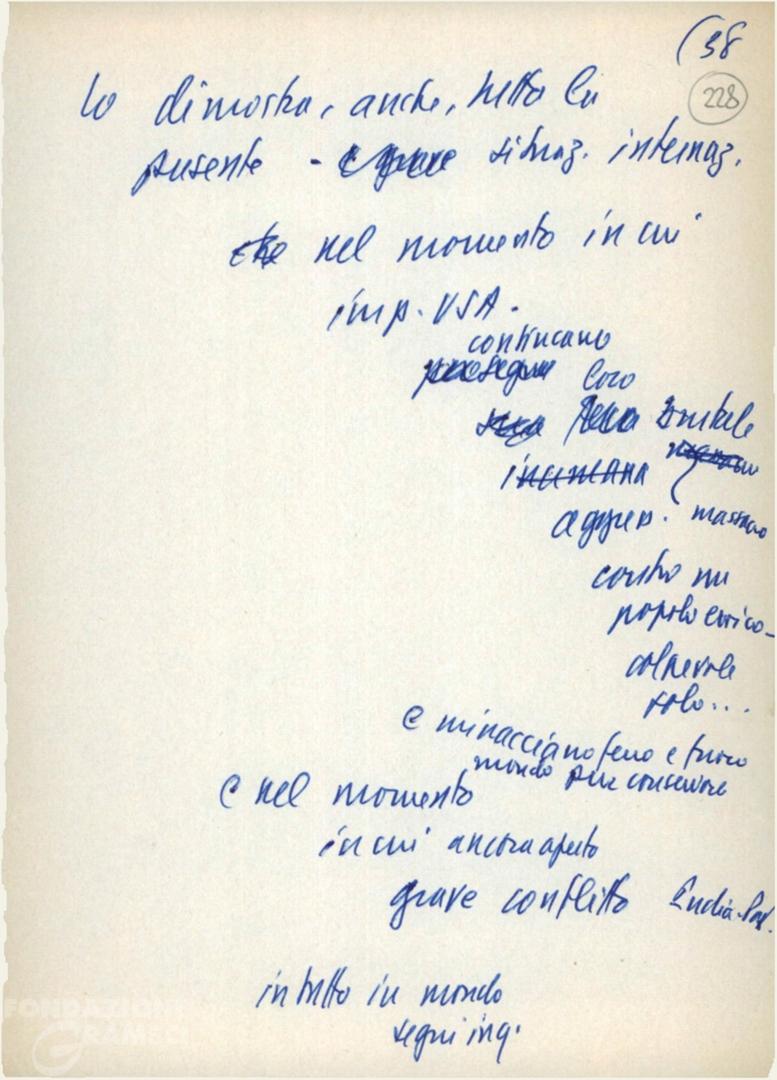 (38
228
lo dimostra, anche, tutta la
presente - e grave situaz. internaz.
che nel momento in cui
imp. USA.
continuano
prosegue loro
sua brutale
inumana
aggres. massacro
contro un
popolo eroico -
colpevole
solo...
e minacciano ferro e fuoco
mondo pur conservare
e nel momento
in cui ancora aperto
grave conflitto India-Pak.
in tutto il mondo
segui inq.
FONDAZIONE
GRAMSCI